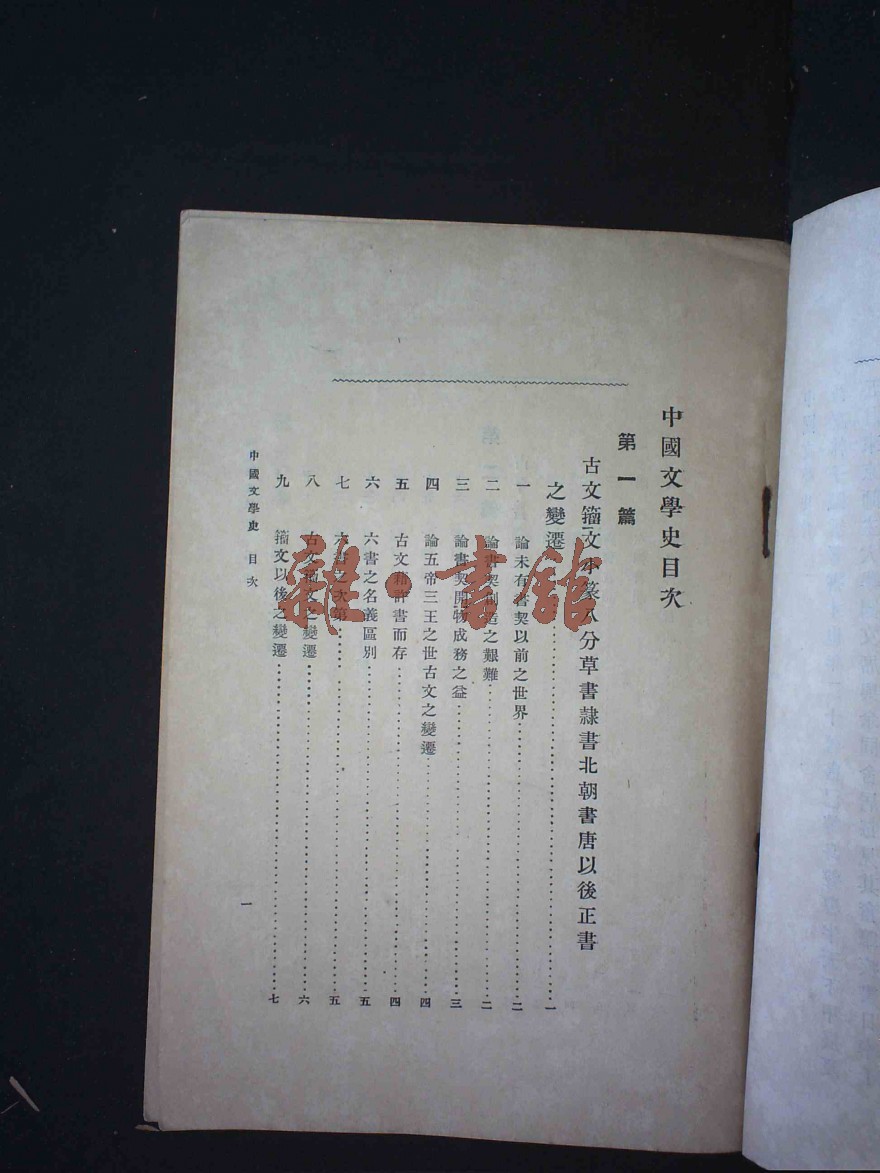 中國文學史目次
第一篇
古文籀文小篆八分草書隸書北朝書唐以後正書
之變遷……一
一 論未有書契以前之世界……二
二 論書契制造之艱難……二
三 論書契開物成務之益……三
四 論五帝三王之世古文之變遷……四
五 古文藉許書而存……四
六 六書之名義區別……五
七 六書之次第……五
八 古文籀文之變遷……六
九 籀文以後之變遷……七
中國文學史 目次
一
雜·書館